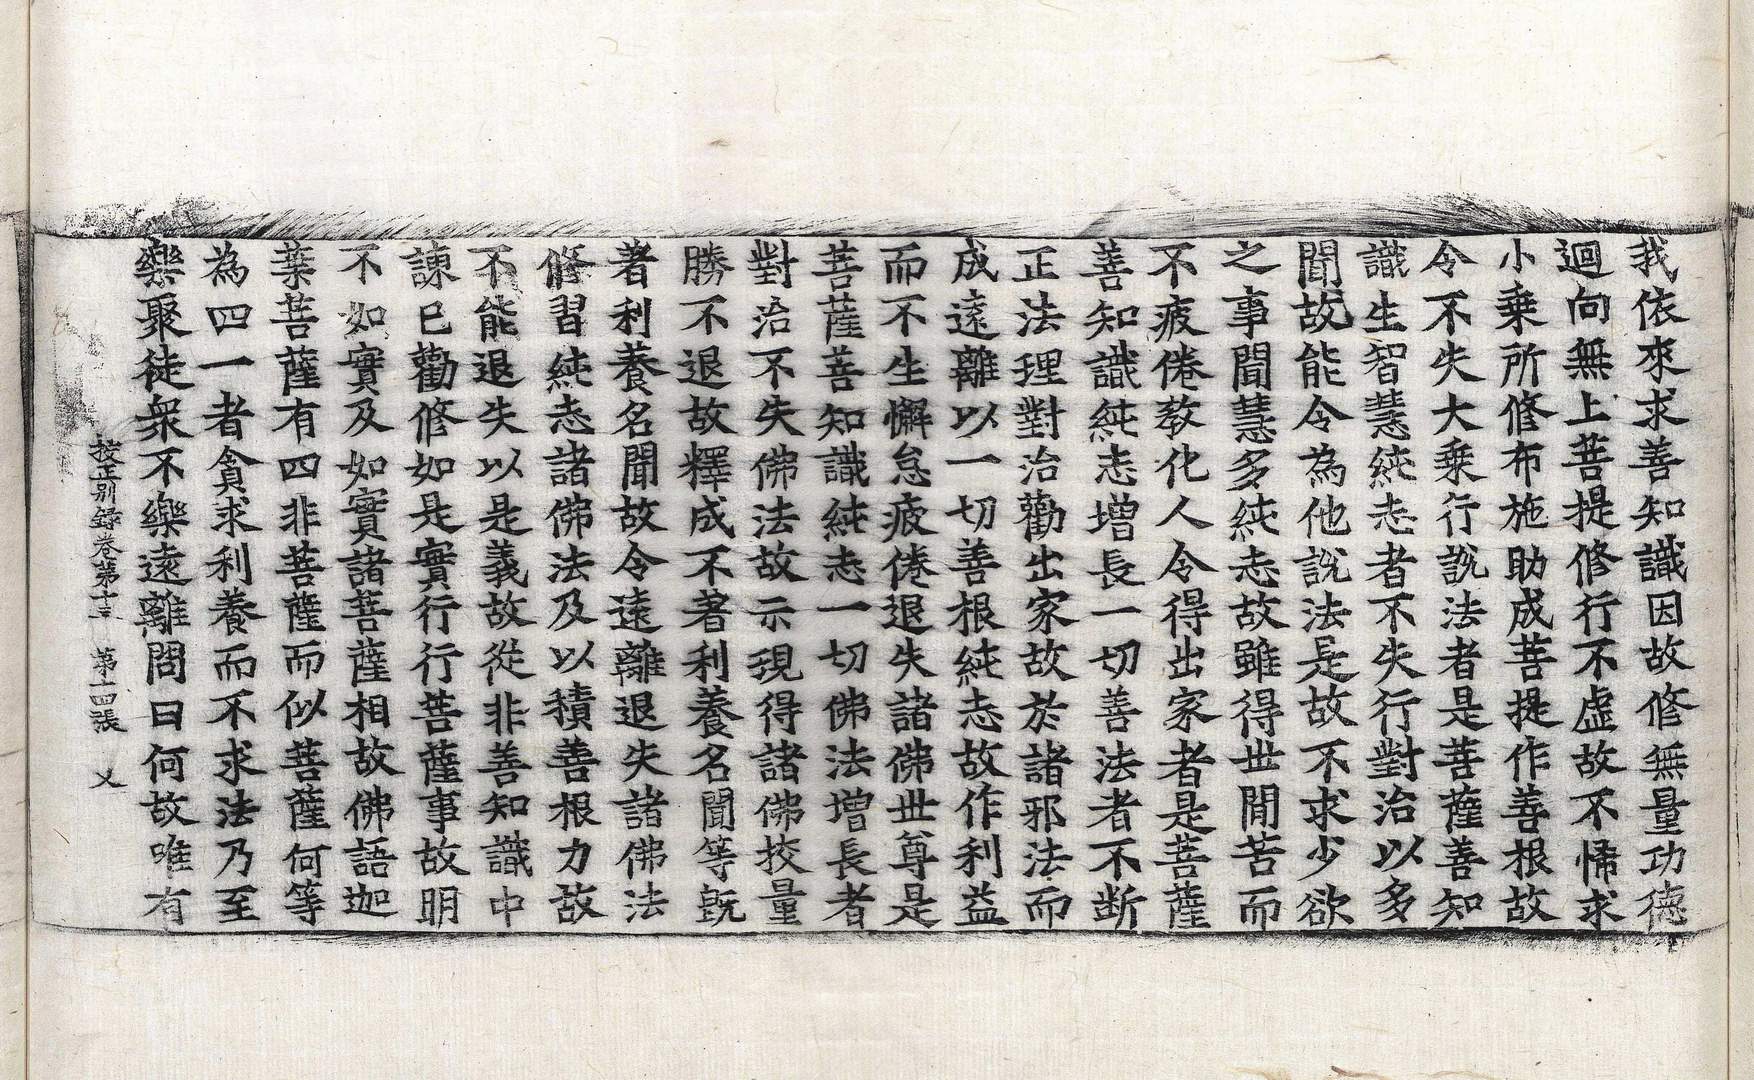 我依來求善知識因故修無量功德
迴向無上菩提修行不虛故不悕求
小乗所修布施助成菩提作善根故
令不失大乗行說法者是菩薩善知
識生智慧純志者不失行對治以多
聞故能令為他說法是故不求少欲
之事聞慧多純志故雖得世間苦而
不疲倦教化人令得出家者是菩薩
善知識純志增長一切善法者不斷
正法理對治勸出家故於諸邪法而
成遠離以一切善根純志故作利益
而不生懈怠疲倦退失諸佛世尊是
菩薩善知識純志一切佛法增長者
對治不失佛法故示現得諸佛挍量
勝不退故釋成不著利養名聞等既
著利養名聞故令遠離退失諸佛法
修習純志諸佛法及以積善根力故
不能退失以是義故從非善知識中
諫已勸修如是實行行菩薩事故明
不如實及如實諸菩薩相故佛語迦
葉菩薩有四非菩薩而似菩薩何等
為四一者貪求利養而不求法乃至
樂聚徒衆不樂遠離問曰何故唯有
挍正别録卷第十三 第十四張 乂